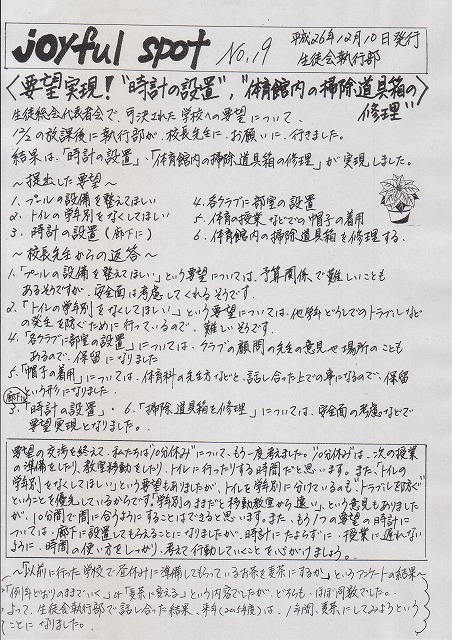 joyful spot No.19 平成26年12月10日発行
生徒会執行部
〈要望実現!"時計の設置","体育館内の掃除道具箱の
修理"〉
生徒総会代表者会で、可決された学校への要望について、
12/2の放課後に執行部が、校長先生に、お願いに、行きました。
結果は、「時計の設置」・「体育館内の掃除道具箱の修理」が実現しました。
~提出した要望~
1. プールの設備を整えてほしい
2. トイレの学年別をなくしてほしい
3. 時計の設置(廊下に)
4. 各クラブに部室の設置
5. 体育の授業などでの帽子の着用
6. 体育館内の掃除道具箱を修理する。
~校長先生からの返答~
1.「プールの設備を整えてほしい」という要望については、予算関係で難しいことも
あるそうですが、安全面は考慮してくれるそうです。
2.「トイレの学年別をなくしてほしい!」という要望については、他学年どうしでのトラブルなど
の発生を防ぐために行っているので、難しいそうです。
4.「各クラブに部室の設置」については、クラブの顧問の先生の意見や場所のことも
あるので、保留になりました
5.「帽子の着用」については、体育科の先生方などと、話し合った上での事になるので、保留
という形になりました。
廊下に
3.「時計の設置」・6.「掃除道具箱を修理」については、安全面の考慮などで
要望実現となりました。
要望の交渉を終えて、私たちは"10分休み"について、もう一度考えました。"10分休み"は、次の授業
の準備をしたり、教室移動をしたり、トイレに行ったりする時間だと思います。また、「トイレの
学年別をなくしてほしい」という要望もありましたが、トイレを学年別に分けているのも"トラブルを防ぐ"
ということを優先しているからです。"学年別のままだと移動教室から遠い"という意見もありました
が、10分間で間に合うようにすることはできると思います。また、もう1つの要望の時計に
ついては、廊下に設置してもらえることになりましたが、時計にたよらずに、授業に遅れない
ように、時間の使い方をしっかり、考えて行動していくことを心がけましょう。
~「以前に行った学校で昼休みに準備してもらっているお茶を麦茶にするか」というアンケートの結果~
「例年どおりのままでいく」or「麦茶に変える」という内容でしたが、どちらも、ほぼ同数でした。
よって、生徒会執行部で話し合った結果、来年(2015年度)は、1年間、麦茶にしてみようという
ことになりました。